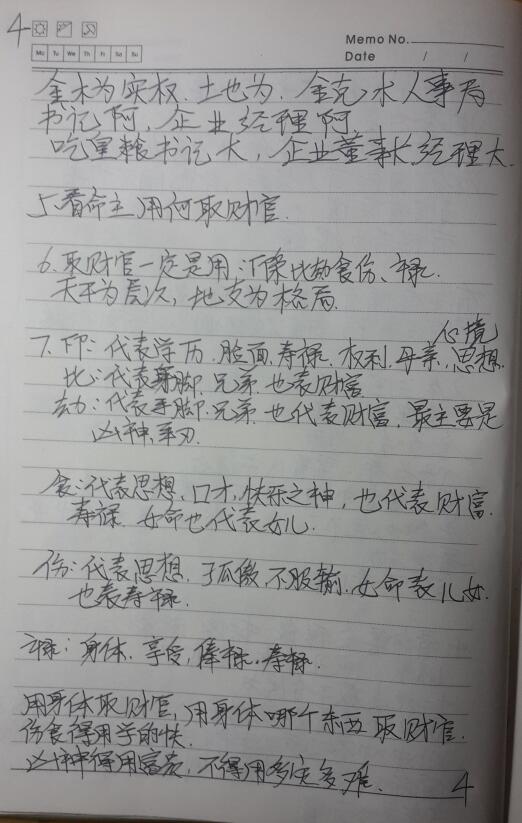 4
Memo No.
Mo Tu We Th Fr Sa Su
Date / /
金木为实权、土也为、金克水人事局
书记啊，企业经理啊
吃皇粮书记大，企业董事长经理大.
5.看命主用何取财官.
6.取财官一定是用:印枭比劫食伤、禄.
天干为层次，地支为格局.
心境
7.印：代表学历、脸面、寿禄、权利、母亲、思想.
比：代表身脚、兄弟、也表财富
劫：代表手脚、兄弟、也代表财富、最主要是
凶神、羊刃.
食：代表思想、口才、快乐之神，也代表财富.
寿禄、女命也代表女儿.
伤：代表思想、孤傲、不服输、女命表儿女.
也表寿禄.
禄：身体、享受，俸禄、寿禄.
用身体取财官，用身体哪个东西取财官.
伤食得用学的快.
凶神得用富贵，不得用多灾多难.
4